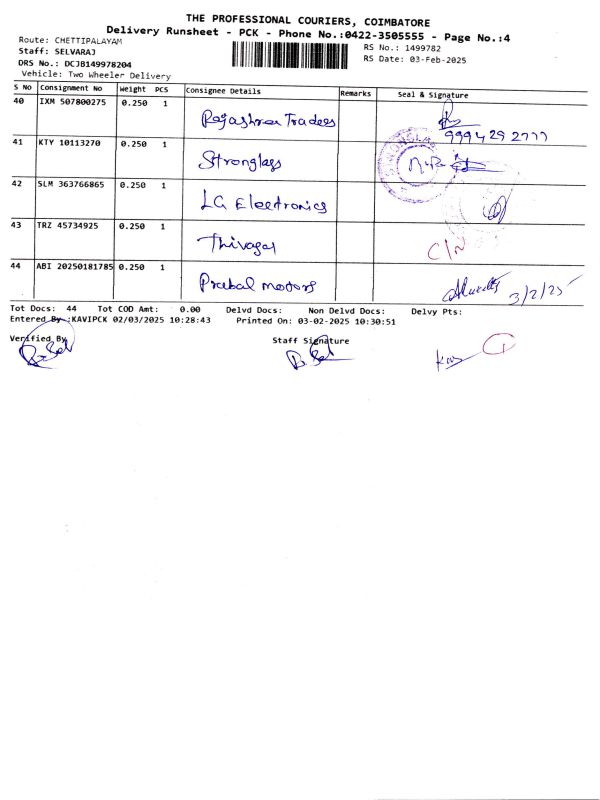 THE PROFESSIONAL COURIERS, COIMBATORE
Delivery Runsheet - PCK - Phone No.:0422-3505555 - Page No.:4
Route: CHETTIPALAYAM
RS No.: 1499782
Staff: SELVARAJ
RS Date: 03-Feb-2025
DRS No.: DCJB149978204
Vehicle: Two Wheeler Delivery
S No Consignment No Weight PCS Consignee Details Remarks Seal & Signature
40 IXM 507800275 0.250 1 Rajashree Traders
9994292777
41 KTY 10113270 0.250 1 Stronglass
42 SLM 363766865 0.250 1 LG Electronics
43 TRZ 45734925 0.250 1 Thivagar C/N
44 ABI 20250181785 0.250 1 Prabal motors 3/2/25
Tot Docs: 44 Tot COD Amt: 0.00 Delvd Docs: Non Delvd Docs: Delvy Pts:
Entered By :KAVIPCK 02/03/2025 10:28:43 Printed On: 03-02-2025 10:30:51
Verified By Staff Signature